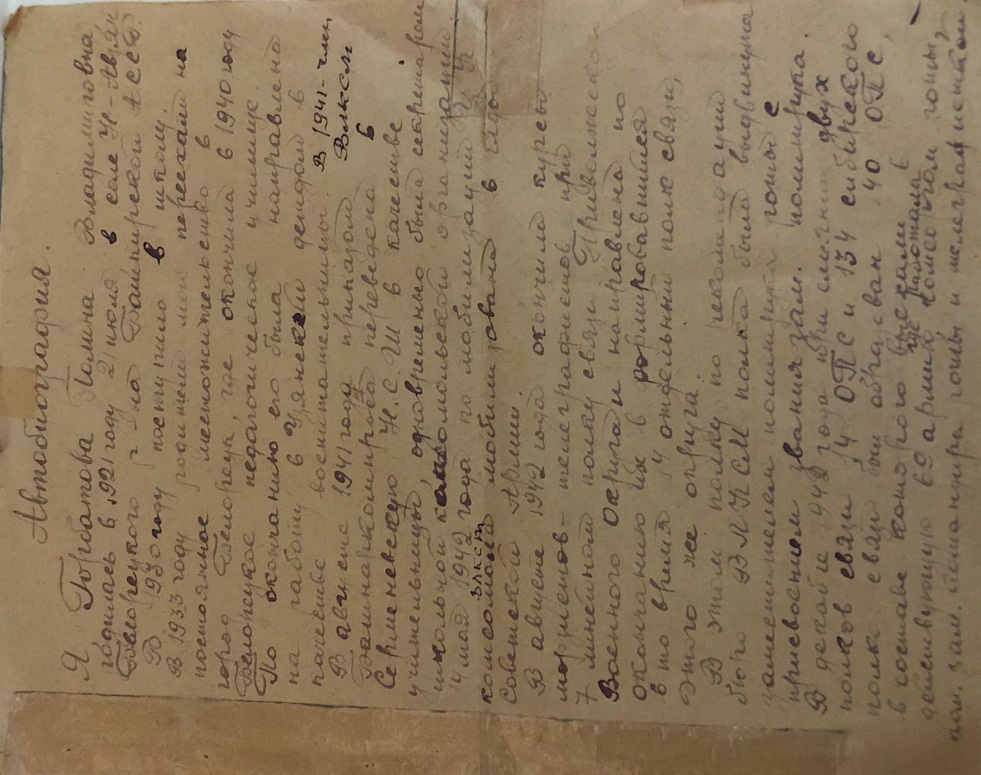 Автобиография.
Я Горбатова Полина Владимировна
родилась в 1921 году 2 июля в селе У-Авзян
Белорецкого р-на Башкирской АССР.
В 1930 году поступила в школу.
В 1933 году родители мои переехали на
постоянное местожительство в
город Белорецк, где окончила в 1940 году
Белорецкое педагогическое училище.
По окончанию его была направлена
на работу в Узянский детдом в
качестве воспитательницы. В 1941 - член ВЛКСМ
В августе 1941 году приказом
Башнаркомпроса переведена в
Серменевскую Н.С.Ш в качестве
учительницы, одновременно была секретарем
школьной комсомольской организации.
14 мая 1942 года по мобилизации ЦК
комсомола ВЛКСМ мобилизована в ряды
Советской Армии.
В августе 1942 года окончила курсы
морзистов - телеграфистов при
7 линейном полку связи Приволжского
Военного округа и направлена по
окончанию их в формировавшийся
в то время 4 отдельный полк связи,
этого же округа.
В этом полку по рекомендации
бюро ВЛКСМ полка была выдвинута
заместителем политрука роты с
присвоением звания зам. политрука.
В декабре 1942 года при слиянии двух
полков связи, 4 ОПС и 134 сибирского
полка связи был образован 140 ОПС,
в составе которого выехали в
действующую 69 армию где работала комсоргом роты,
пом. зам. командира роты и телеграфисткой.